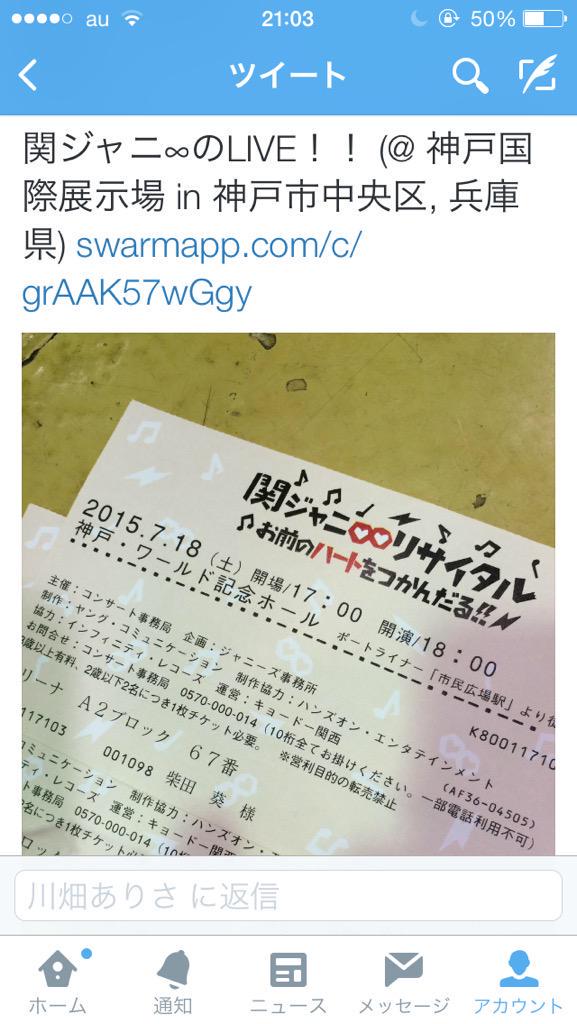 au 21:03 50%
ツイート
関ジャニ∞のLIVE！！ (@ 神戸国
際展示場 in 神戸市中央区, 兵庫
県) swarmapp.com/c/
grAAK57wGgy
関ジャニ∞リサイタル
お前のハートをつかんだる!!
2015.7.18（土）開場/17：00 開演/18：00
神戸・ワールド記念ホール ポートライナー「市民広場駅」より徒
主催：コンサート事務局 企画：ジャニーズ事務所
制作：ヤング・コミュニケーション 制作協力：ハンズオン・エンタテインメント
協力：インフィニティ・レコーズ 運営：キョードー関西
お問合せ：コンサート事務局 0570-000-014 (10桁全てお掛けください。一部電話利用不可)
3歳以上有料、2歳以下2名につき1枚チケット必要。 ※営利目的の転売禁止
K80011710
(AF36-04505)
リーナ A2ブロック 67番
117103 001098 柴田 葵 様
コミュニケーション 制作協力：ハンズオン・エ
ティ・レコーズ 運営：キョードー関西
事務局 0570-000-014 (10桁
2名につき1枚チケット必
川畑ありさ に返信
ホーム 通知 ニュース メッセージ アカウント